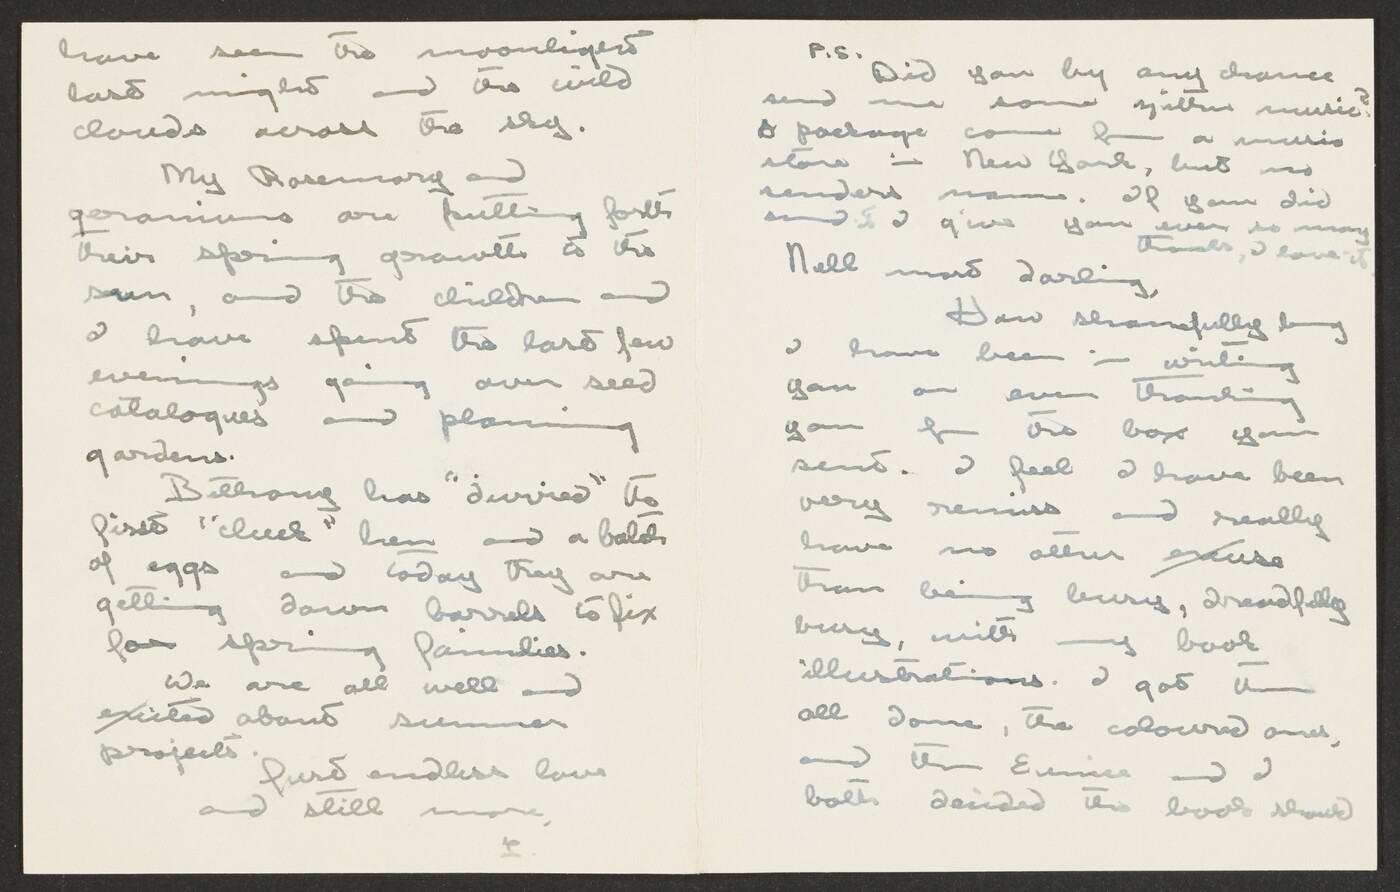 have seen the moonlight
last night and the wild
clouds across the sky.
My Rosemary and
geraniums are putting forth
their spring growth to the
sun, and the children and
I have spent the last few
evenings going over seed
catalogues and planning
gardens.
Bethany has "durried" the
first "cluck" hen and a batch
of eggs and today they are
getting down barrels to fix
for spring families.
We are all well and
exited about summer
projects.
Just endless love
and still more,
P.S.
Did you by any chance
send me some zither music?
A package come from a music
store in New York, but no
senders name. If you did
send it I give you ever so many
thanks, I love it.
Nell most darling,
How shamefully long
I have been in writing
you or even thanking
you for the box you
sent. I feel I have been
very remiss and really
have no other exuse
than being busy, dreadfully
busy, with my book
illustrations. I got them
all done, the coloured ones,
and then Eunice and I
both decided the book should